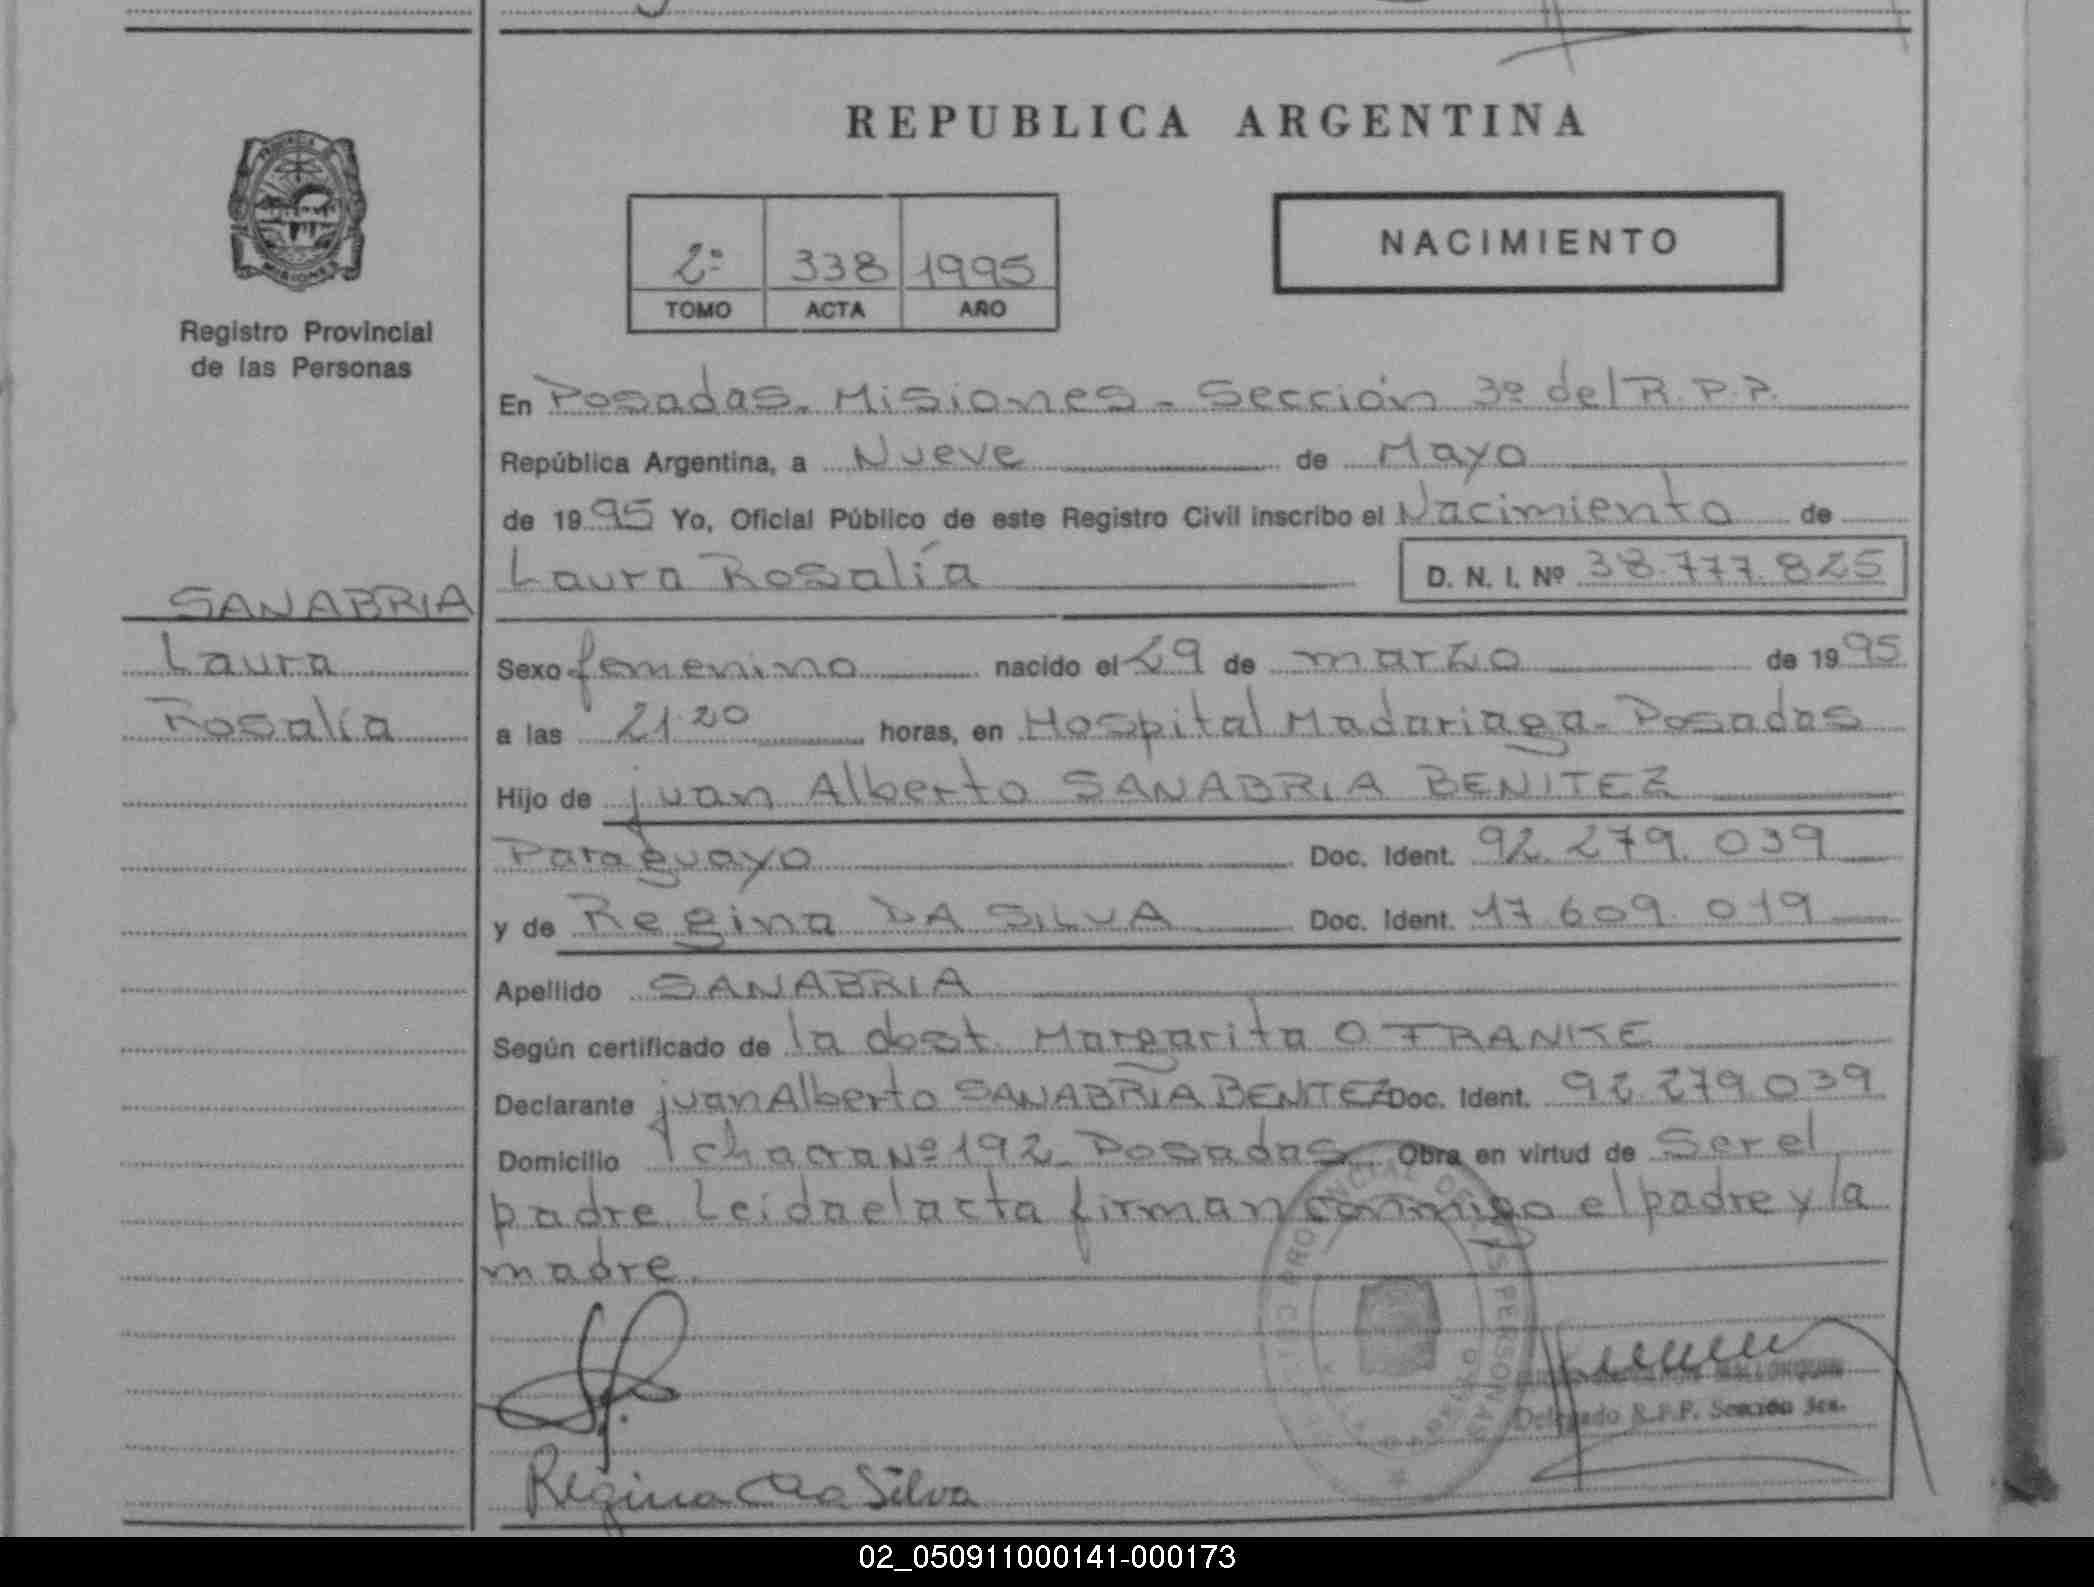 REPUBLICA ARGENTINA
PROVINCIA D
MISIONES
Registro Provincial
de las Personas
2º 338 1995
TOMO ACTA AÑO
NACIMIENTO
En Posadas. Misiones - Sección 3º del R.P.P.
República Argentina, a Nueve de Mayo
de 1995 Yo, Oficial Público de este Registro Civil inscribo el Nacimiento de
Laura Rosalía D. N. I. Nº 38.777.825
SANABRIA
Laura
Rosalía
Sexo femenino nacido el 29 de marzo de 1995
a las 21.20 horas, en Hospital Madariaga - Posadas
Hijo de juan Alberto SANABRIA BENITEZ
Paraguayo Doc. Ident. 92.279.039
y de Regina DA SILVA Doc. Ident. 17.609.019
Apellido SANABRIA
Según certificado de la obst. Margarita O. FRANKE
Declarante juan Alberto SANABRIA BENITEZ Doc. Ident. 92.279.039
Domicilio chacra Nº 192 Posadas Obra en virtud de Ser el
padre Leida el acta firman conmigo el padre y la
madre.
MALLORQUIN
Delegado R.P.P. Sección 3ra.
Regina Da Silva
02_050911000141-000173